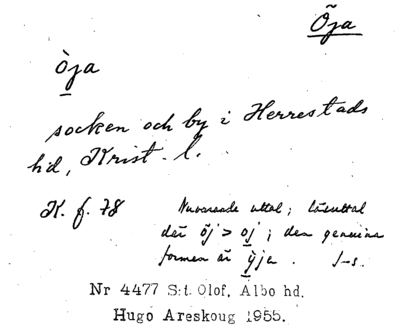 Öja
öja
socken och by i Herrestads
hd, Krist. l.
K. f. 78
Nuvarande uttal; läsuttal
där öj > oj; den genuina
formen är ỳja. J-s.
Nr 4477 S:t Olof, Albo hd.
Hugo Areskoug 1955.